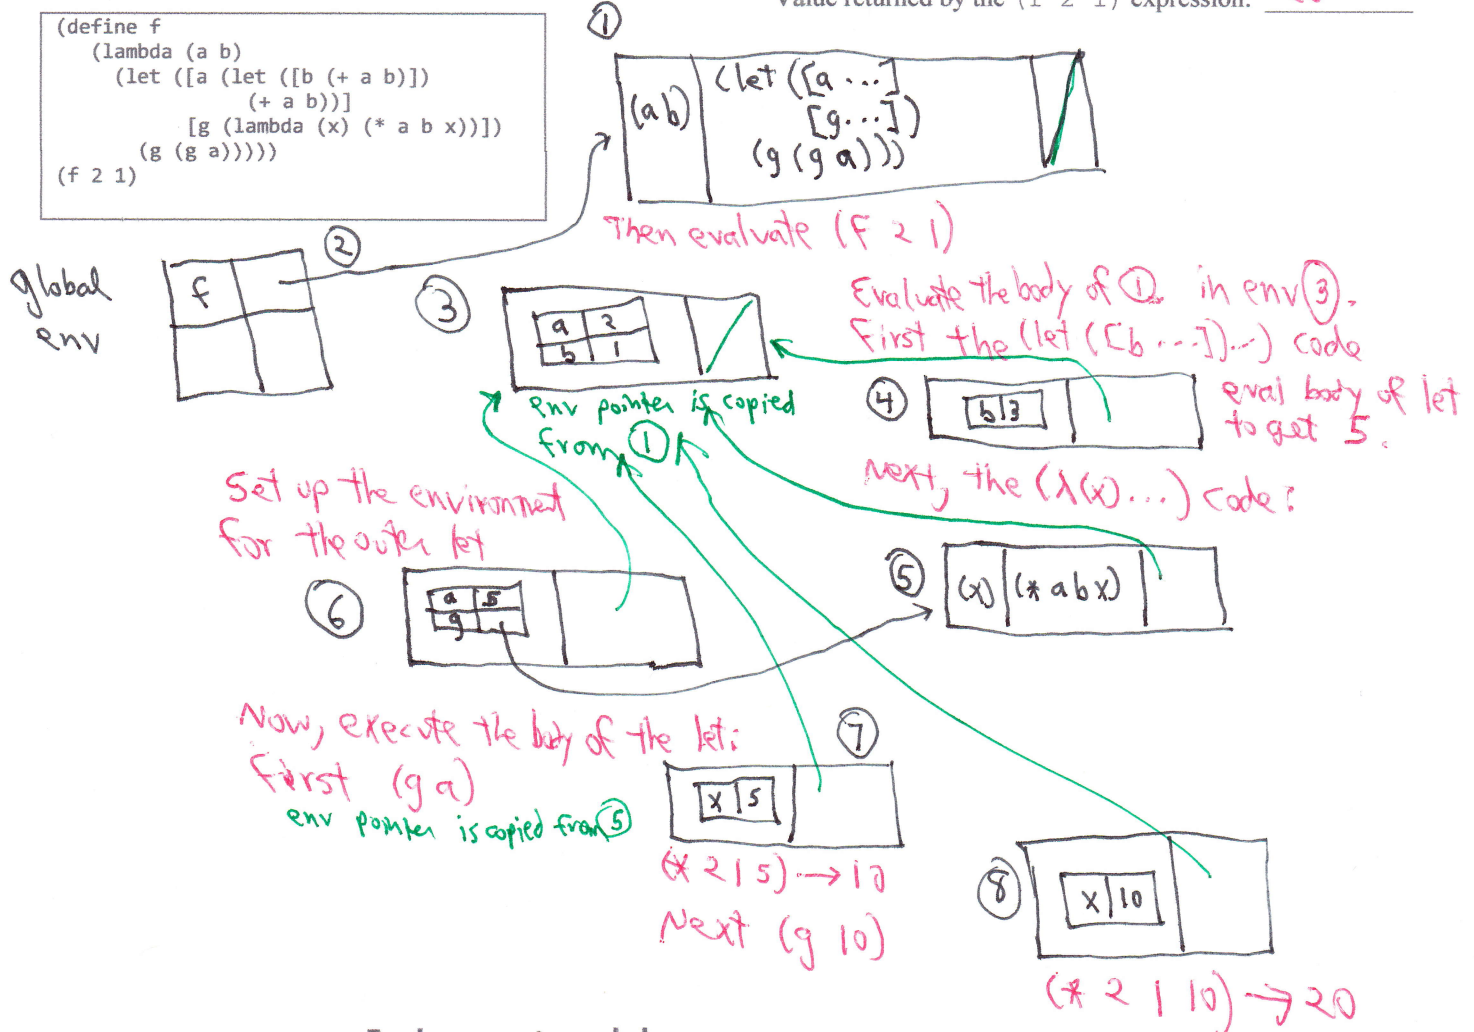 Value returned by the (f 2 1) expression:
(define f
(lambda (a b)
(let ([a (let ([b (+ a b)])
(+ a b))]
[g (lambda (x) (* a b x))])
(g (g a)))))
(f 2 1)
①
(a b)
(let ([a ...]
[g...])
(g (g a)))
Then evaluate (f 2 1)
②
global
env
f
③
a 2
b 1
env pointer is copied
from ①
Evaluate the body of ① in env ③.
First the (let ([b ...])...) code
④
b 3
eval body of let
to get 5.
Next, the (λ(x)...) code:
⑤
(x) (* a b x)
Set up the environment
for the outer let
⑥
a 5
g
Now, execute the body of the let:
First (g a)
env pointer is copied from ⑤
⑦
x 5
(* 2 1 5) → 10
Next (g 10)
⑧
x 10
(* 2 1 10) → 20